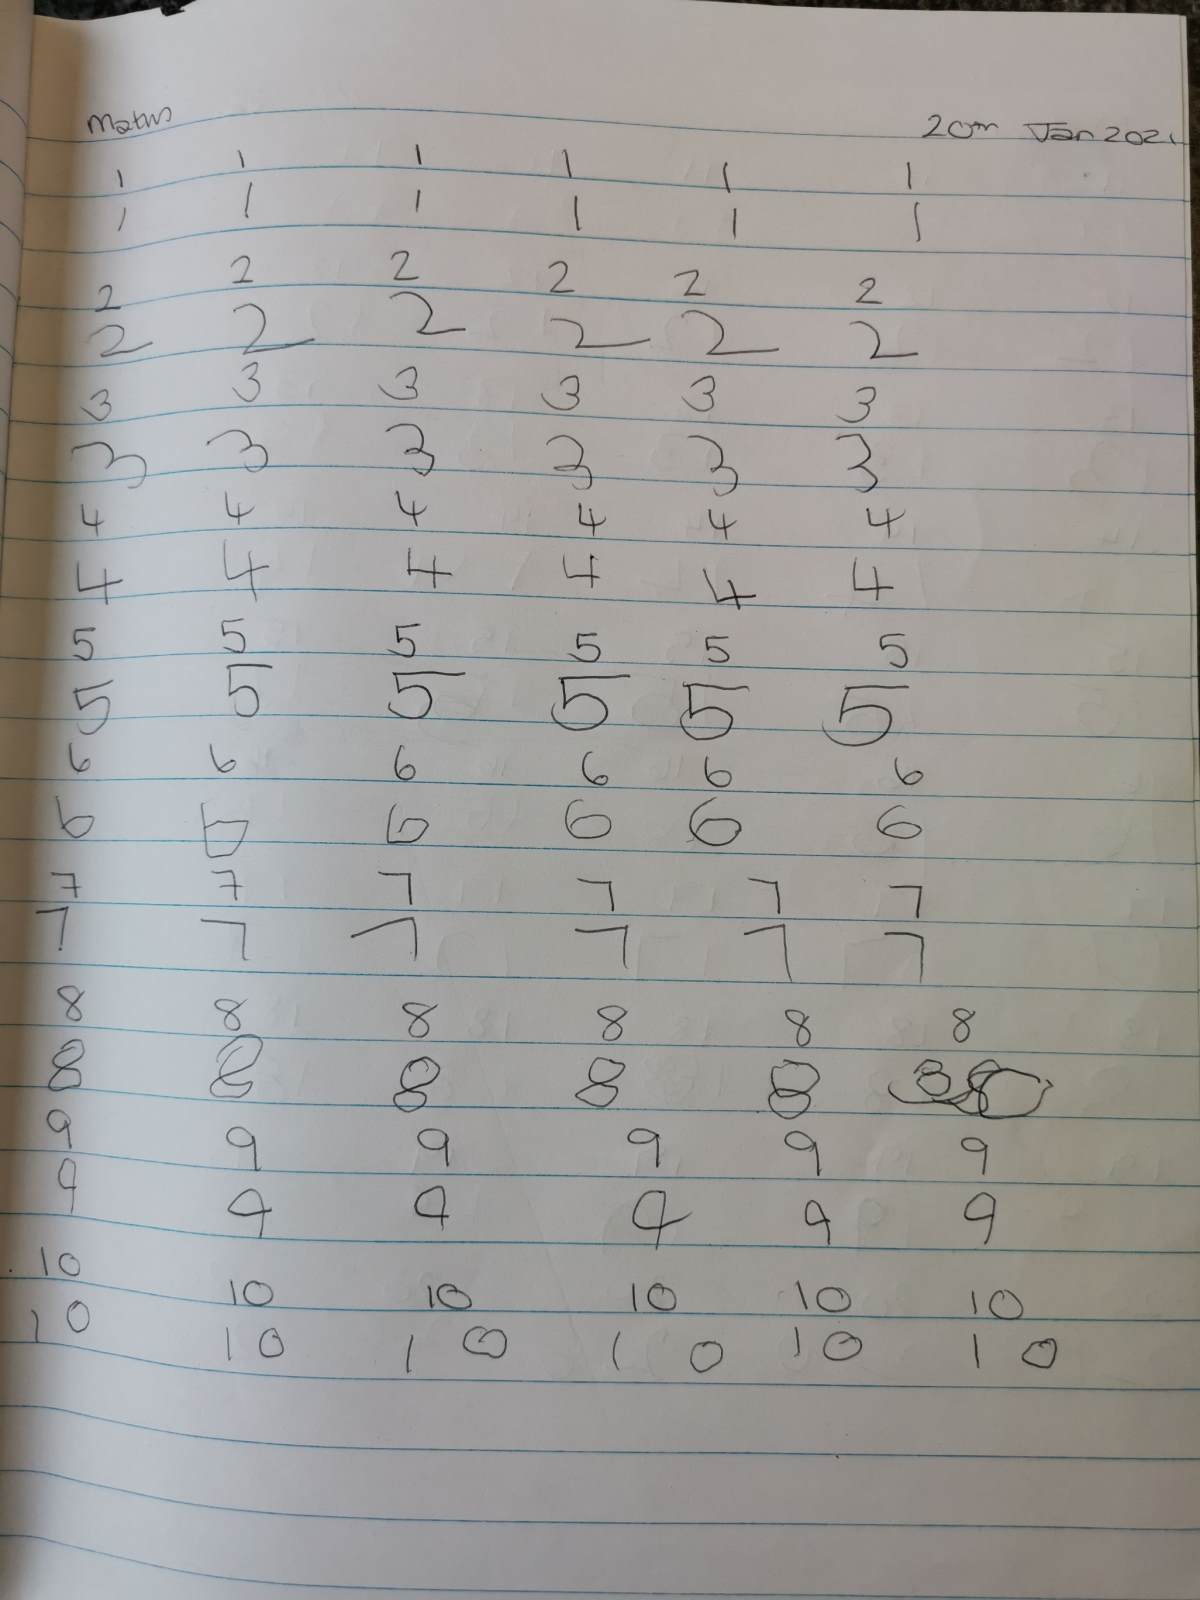 Maths 20th Jan 2021
1 1 1 1 1 1
1 1 1 1 1 1
2 2 2 2 2 2
2 2 2 2 2 2
3 3 3 3 3 3
3 3 3 3 3 3
4 4 4 4 4 4
4 4 4 4 4 4
5 5 5 5 5 5
5 5 5 5 5 5
6 6 6 6 6 6
6 6 6 6 6 6
7 7 7 7 7 7
7 7 7 7 7 7
8 8 8 8 8 8
8 8 8 8 8
9 9 9 9 9 9
9 9 9 9 9 9
10 10 10 10 10 10
10 10 10 10 10 10